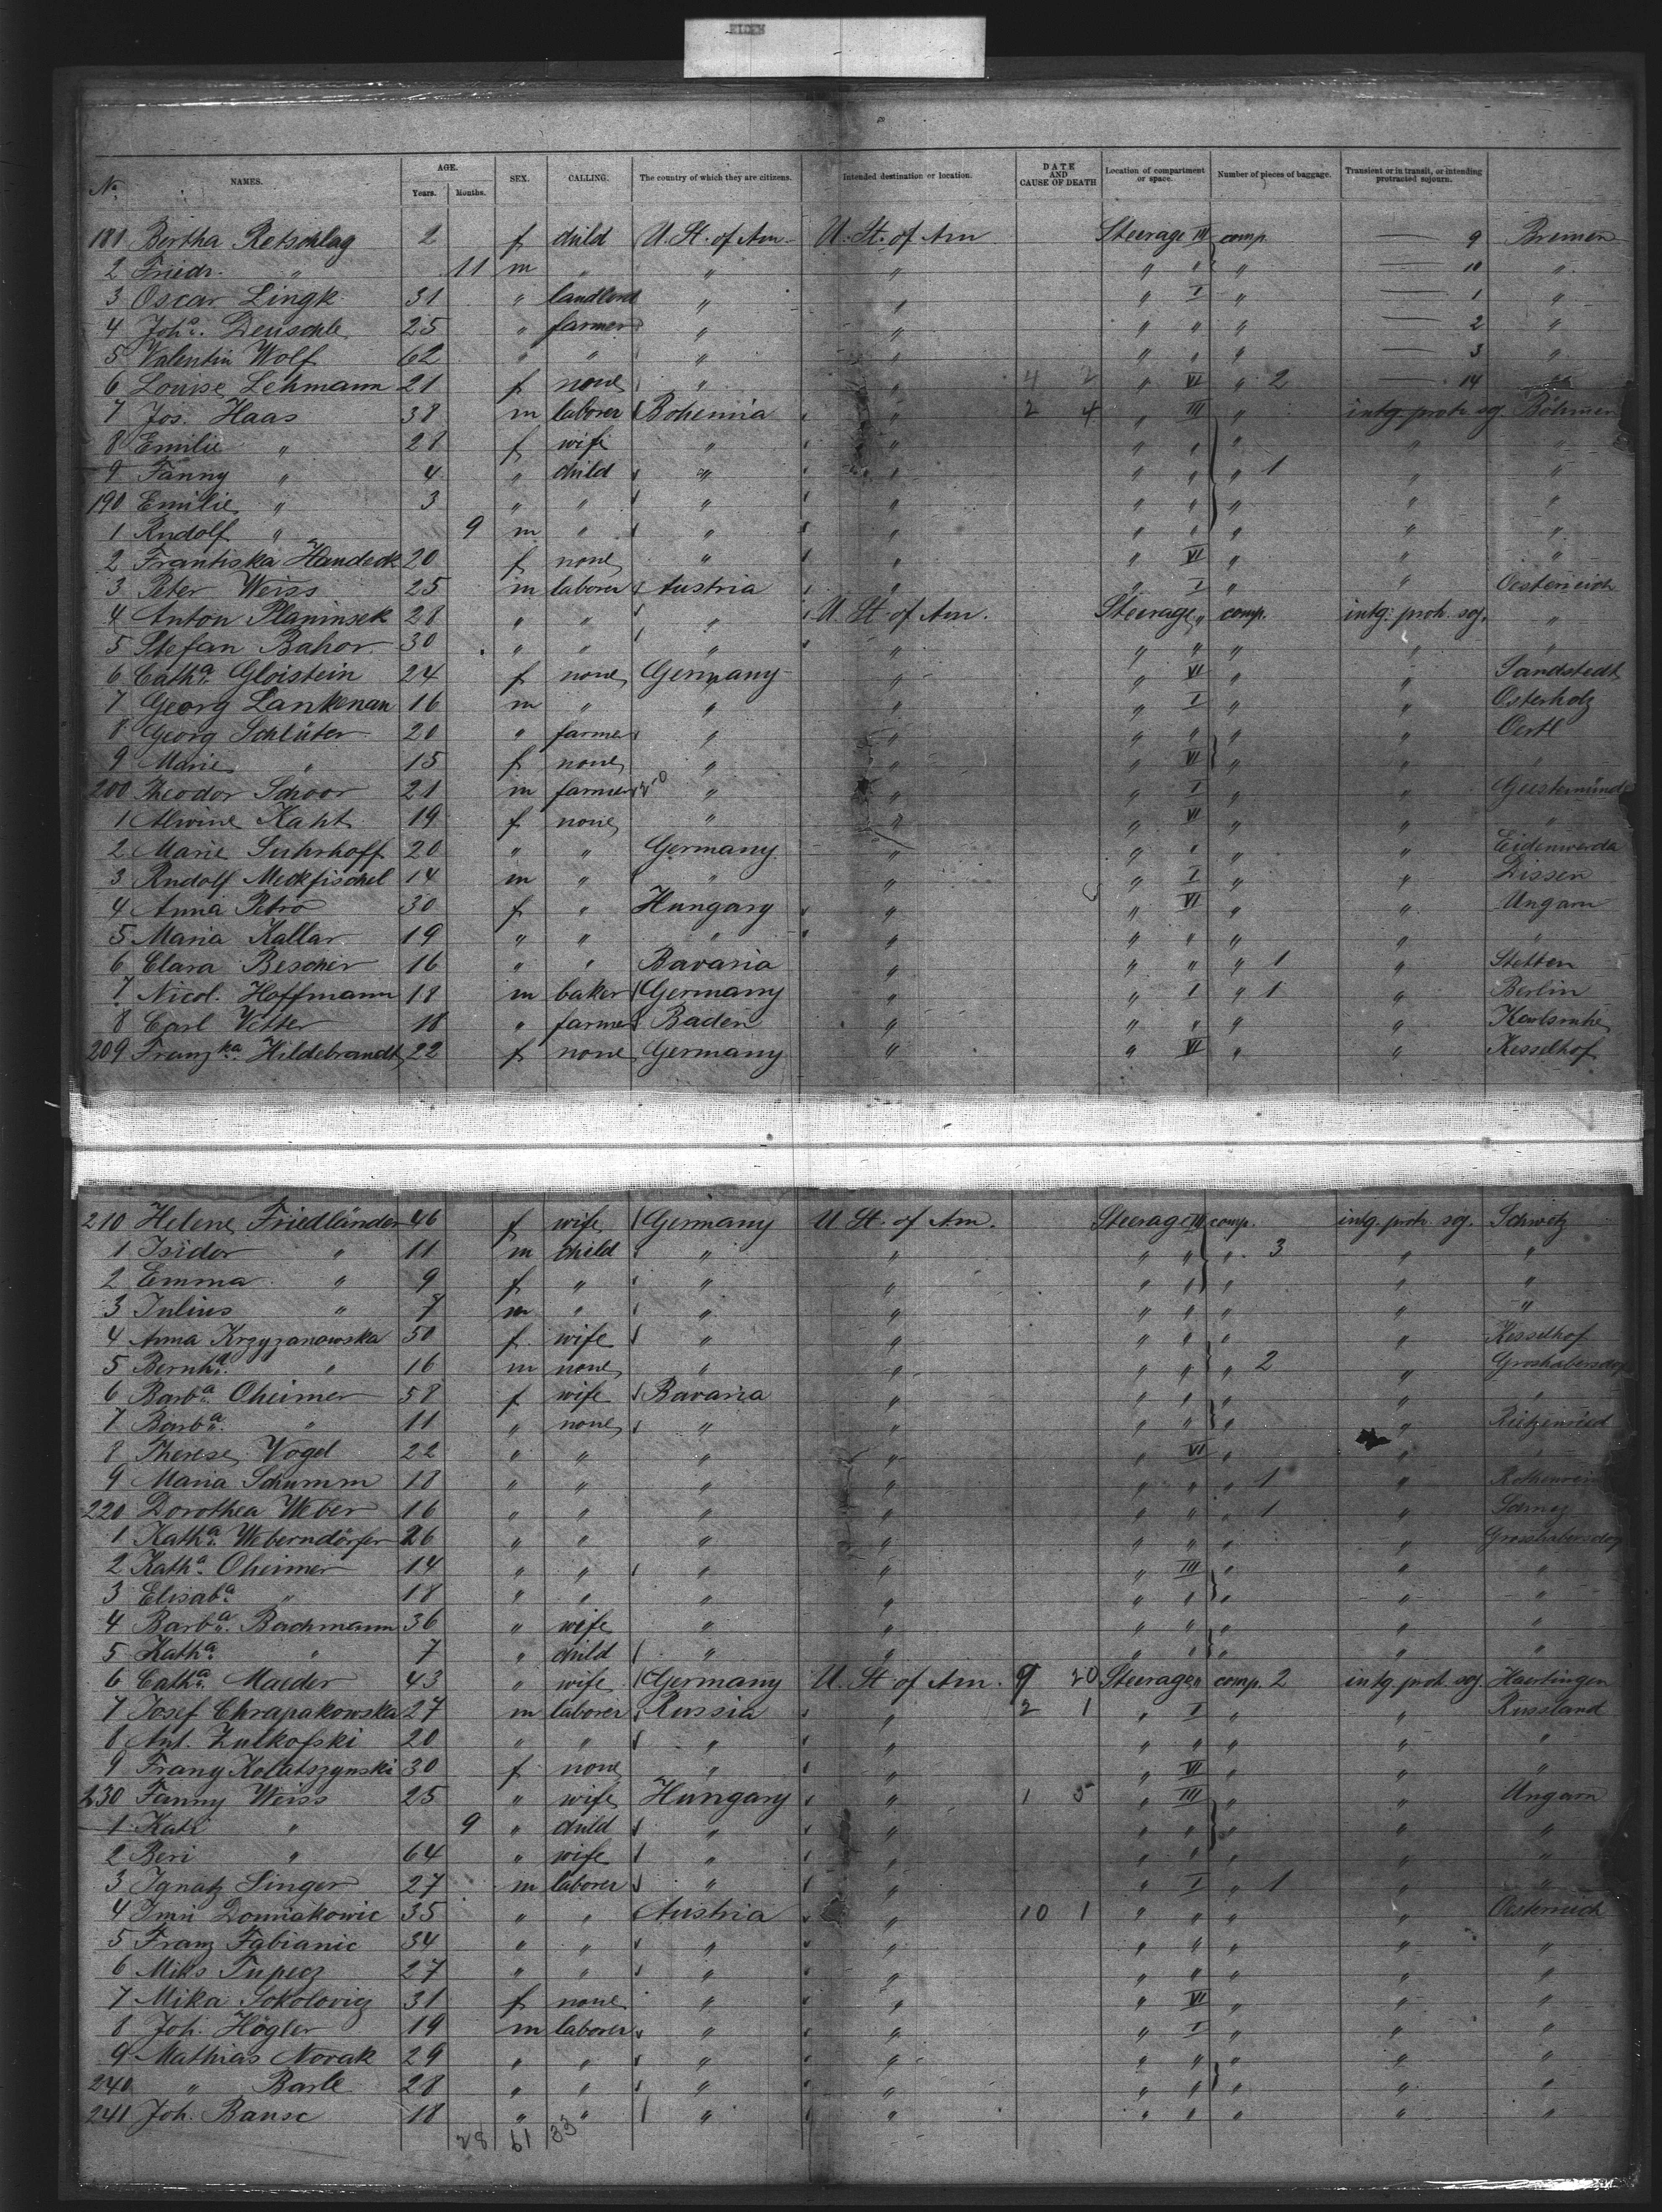 EIDEN
No. NAMES. AGE. Years. Months. SEX. CALLING. The country of which they are citizens. Intended destination or location. DATE AND CAUSE OF DEATH Location of compartment or space. Number of pieces of baggage. Transient or in transit, or intending protracted sojourn.
181 Bertha Retschlag 2 f child U. St. of Am. U. St. of Am Steerage III comp. — 9 Bremen
2 Friedr. " 11 m " " " " " " — 10 "
3 Oscar Lingk 31 " landlord " " " I " — 1 "
4 Joha. Deuschle 25 " farmer " " " " " — 2 "
5 Valentin Wolf 62 " " " " " " " — 3 "
6 Louise Lehmann 21 f none " " 4 2 " VI " 2 — 14 "
7 Jos. Haas 38 m laborer Bohemia " 2 4 " III " intg. protr. soj. Böhmen
8 Emilie " 28 f wife " " " " " " "
9 Fanny " 4 " child " " " " " 1 " "
190 Emilie " 3 " " " " " " " " "
1 Rudolf " 9 m " " " " " " " "
2 Frantiska Handeck 20 f none " " " VI " " "
3 Peter Weiss 25 m laborer Austria " " I " " Oesterreich
4 Anton Planinsek 28 " " " U. St. of Am. Steerage " comp. intg. protr. soj. "
5 Stefan Bahor 30 " " " " " " " " "
6 Catha. Gloistein 24 f none Germany " " VI " " Sandstedt
7 Georg Lankenau 16 m " " " " I " " Osterholz
8 Georg Schlüter 20 " farmer " " " " " " Oertl
9 Marie " 15 f none " " " VI " " "
200 Theodor Schoor 21 m farmer " " " I " " Geestemünde
1 Alwine Kaht 19 f none " " " VI " " "
2 Marie Suhrhoff 20 " " Germany " " " " " Eidenwerda
3 Rudolf Meckfischel 14 m " " " " I " " Dissen
4 Anna Petro 30 f " Hungary " " VI " " Ungarn
5 Maria Kallar 19 " " " " " " " " "
6 Clara Bescher 16 " " Bavaria " " " " 1 " Stetten
7 Nicol. Hoffmann 18 m baker Germany " " I " 1 " Berlin
8 Carl Vetter 18 " farmer Baden " " " " " Karlsruhe
209 Franzka. Hildebrandt 22 f none Germany " " VI " " Kesselhof
210 Helene Friedländer 46 f wife Germany U. St. of Am. Steerage III comp. intg. protr. soj. Schwetz
1 Isidor " 11 m child " " " " " 3 " "
2 Emma " 9 f " " " " " " " "
3 Julius " 7 m " " " " " " " "
4 Anna Krzyzanowska 50 f wife " " " " " " Kesselhof
5 Bernha. " 16 m none " " " " " 2 " Groshabersdorf
6 Barba. Oheimer 58 f wife Bavaria " " " " " "
7 Barba. " 11 " none " " " " " "
8 Therese Vogel 22 " " " " " VI " " "
9 Maria Schumm 18 " " " " " " " 1 "
220 Dorothea Weber 16 " " " " " " " 1 "
1 Katha. Weberndörfer 26 " " " " " " " " Grosshabersdorf
2 Katha. Oheimer 14 " " " " " III " " "
3 Elisaba. " 18 " " " " " " " " "
4 Barba. Bachmann 36 " wife " " " " " " "
5 Katha. " 7 " child " " " " " " "
6 Catha. Maeder 43 " wife Germany U. St. of Am. 9 20 Steerage " comp. 2 intg. protr. soj. Haertingen
7 Josef Chrapakowska 27 m laborer Russia " 2 1 " I " " Russland
8 Ant. Zulkofski 20 " " " " " " " " "
9 Franz Kolatszynski 30 f none " " " VI " " "
230 Fanny Weiss 25 " wife Hungary " 1 5 " III " " Ungarn
1 Kati " 9 " child " " " " " " "
2 Beri " 64 " wife " " " " " " "
3 Ignatz Singer 27 m laborer " " " I " 1 " "
4 Imri Domiakowic 35 " " Austria " 10 1 " " " " Oesterreich
5 Franz Fabianic 34 " " " " " " " " "
6 Miks Tupecz 27 " " " " " " " " "
7 Mika Sokolovicz 31 f none " " " VI " " "
8 Joh. Högler 19 m laborer " " " I " " "
9 Mathias Novak 29 " " " " " " " " "
240 " Barle 28 " " " " " " " " "
241 Joh. Bansc 18 " " " " " " " " "
28 61 33